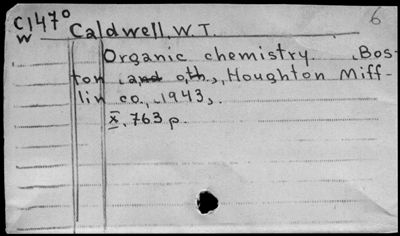 C1470 6
w Caldwell, W.T.
Organic chemistry. Bos-
ton and oth., Houghton Miff-
lin co., 1943,.
X, 763 p.